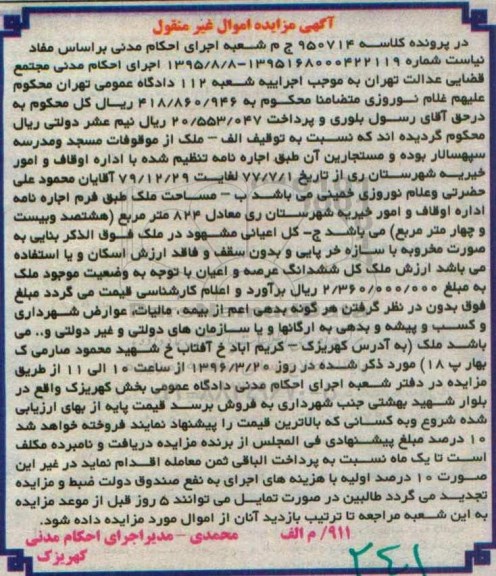 آگهی مزایده اموال غیر منقول
در پرونده کلاسه ۹۵۰۷۱۴ ج م شعبه اجرای احکام مدنی براساس مفاد
نیابت شماره ۱۳۹۵۱۶۸۰۰۰۴۲۲۱۱۹-۱۳۹۵/۸/۸ اجرای احکام مدنی مجتمع
قضایی عدالت تهران به موجب اجراییه شعبه ۱۱۲ دادگاه عمومی تهران محکوم
علیهم غلام نوروزی متضامنا محکوم به ۴۱۸/۸۶۰/۹۴۶ ریال کل محکوم به
درحق آقای رسول بلوری و پرداخت ۲۰/۵۵۳/۰۴۷ ریال نیم عشر دولتی ریال
محکوم گردیده اند که نسبت به توقیف الف - ملک از موقوفات مسجد ومدرسه
سپهسالار بوده و مستاجرین آن طبق اجاره نامه تنظیم شده با اداره اوقاف و امور
خیریه شهرستان ری از تاریخ ۷۷/۷/۱ لغایت ۷۹/۱۲/۲۹ آقایان محمود علی
حضرتی وغلام نوروزی خمینی می باشد ب - مساحت ملک طبق فرم اجاره نامه
اداره اوقاف و امور خیریه شهرستان ری معادل ۸۲۴ متر مربع (هشتصد وبیست
و چهار متر مربع) می باشد ج- کل اعیانی مشهود در ملک فوق الذکر بنایی به
صورت مخروبه با سازه خر پایی و بدون سقف و فاقد ارزش اسکان و یا استفاده
می باشد ارزش ملک کل ششدانگ عرصه و اعیان با توجه به وضعیت موجود ملک
به مبلغ ۲/۳۶۰/۰۰۰/۰۰۰ ریال برآورد و اعلام کارشناسی قیمت می گردد مبلغ
فوق بدون در نظر گرفتن هر گونه بدهی اعم از بیمه ، مالیات، عوارض شهرداری
و کسب و پیشه و بدهی به ارگانها و یا سازمان های دولتی و غیر دولتی و.. می
باشد ملک (به آدرس کهریزک - کریم آباد خ آفتاب خ شهید محمود صارمی ک
بهار پ ۱۸) مورد ذکر شده در روز ۱۳۹۶/۳/۲۰ از ساعت ۱۰ الی ۱۱ از طریق
مزایده در دفتر شعبه اجرای احکام مدنی دادگاه عمومی بخش کهریزک واقع در
بلوار شهید بهشتی جنب شهرداری به فروش برسد قیمت پایه از بهای ارزیابی
شده شروع وبه کسانی که بالاترین قیمت را پیشنهاد نمایند فروخته خواهد شد
۱۰ درصد مبلغ پیشنهادی فی المجلس از برنده مزایده دریافت و نامبرده مکلف
است تا یک ماه نسبت به پرداخت الباقی ثمن معامله اقدام نماید در غیر این
صورت ۱۰ درصد اولیه با هزینه های اجرای به نفع صندوق دولت ضبط و مزایده
تجدید می گردد طالبین در صورت تمایل می توانند ۵ روز قبل از موعد مزایده
به این شعبه مراجعه تا ترتیب بازدید آنان از اموال مورد مزایده داده شود.
۹۱۱/ م الف محمدی - مدیراجرای احکام مدنی
کهریزک